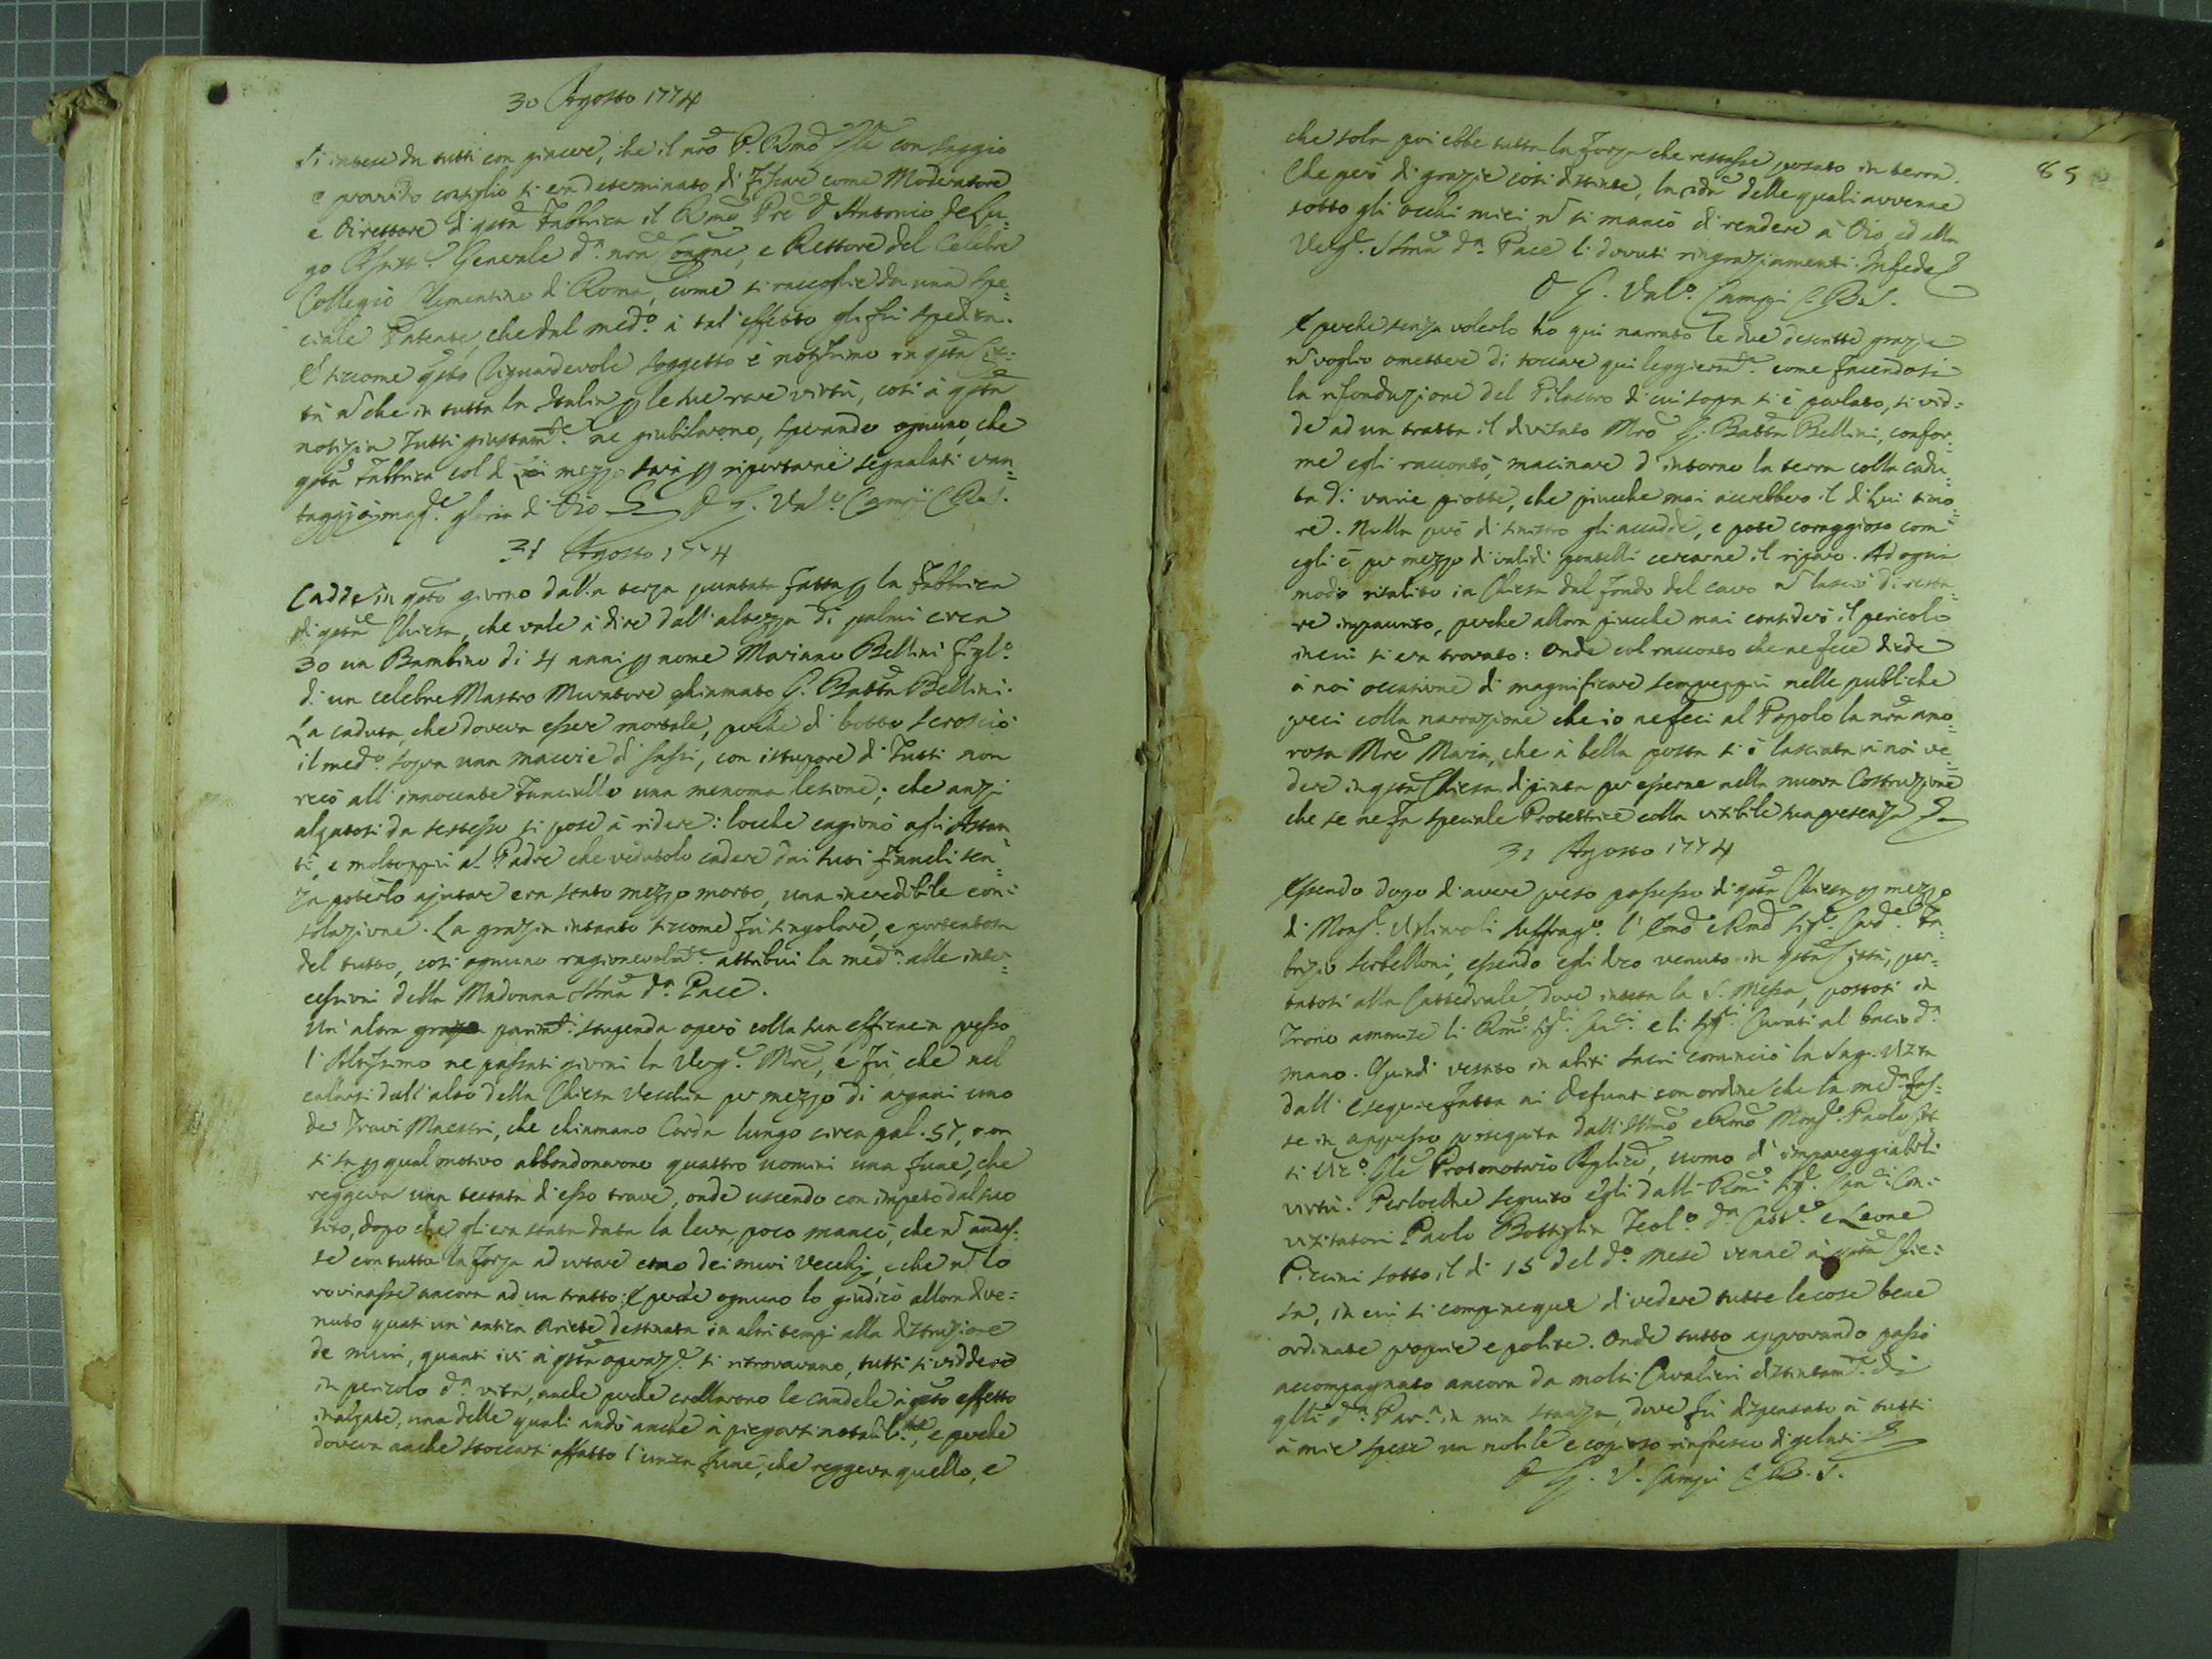 30 Agosto 1774
Si intese da tutti con piacere, che il nrõ P. Rmõ Gle con saggio
e provvido consiglio si era determinato di fissare come Moderatore
e Direttore di qstã Fabbrica il Rmõ Prẽ D. Antonio de Lu=
go Assist.e Generale d.a nrã Congne, e Rettore del Celebre
Collegio Clementino di Roma, come si raccoglie da una spe=
ciale Patente, che dal med.o à tal' effetto gli fù spedita.
E siccome qsto riguardevole soggetto è notissimo in qsta Cit=
tà nõ che in tutta la Italia p le sue rare virtù, così à qsta
notizia tutti giustam.te ne giubilarono, sperando ognuno, che
qsta Fabbrica col di Lui mezzo sarà p riportarne segnalati van=
taggj à mag.e gloria di Dio D. G. Val.o Campi C.R.S.
31 Agosto 1774
Cadde in qsto giorno dalla terza puntata fatta p la Fabbrica
di qsta Chiesa, che vale à dire dall' altezza di palmi circa
30 un Bambino di 4 anni p nome Mariano Bellini figl.o
di un celebre Mastro Muratore chiamato G. Battã Bellini.
La caduta, che doveva essere mortale, perche di botto scrosciò
il med.o sopra una macerie di sassi, con istupore di tutti non
recò all' innocente fanciullo una menoma lesione; che anzi
alzatosi da sestesso si pose à ridere: locche cagionò agli Astan
ti, e moltoppiù al Padre che vedutolo cadere dai suoi fianchi sen=
za poterlo ajutare era stato mezzo morto, una incredibile con=
solazione. La grazia intanto siccome fù singolare, e portentosa
del tutto, così ognuno ragionevolm.te attribuì la med.a alle inter=
cessioni della Madonna Ssma d.a Pace.
Un' altra grazia parim.ti stupenda operò colla sua efficacia presso
l' Altissimo ne passati giorni la Verg.e Mrẽ, e fù, che nel
calarsi dall' alto della Chiesa Vecchia per mezzo di argani uno
de Travi Maestri, che chiamano Corda lungo circa pal. 57, non
si sa p qual motivo abbandonarono quattro uomini una fune, che
reggeva una testata di esso trave, onde uscendo con impeto dal suo
sito, dopo che gli era stata data la leva, poco mancò, che nõ andas=
se con tutta la forza ad urtare uno dei muri Vecchj, e che nõ lo
rovinasse ancora ad un tratto: E perche ognuno lo giudicò allora dive=
nuto quasi un' antica Ariete destinata in altri tempi alla distruzione
de muri, quanti ivi à qsta operaz.e si ritrovavano, tutti si viddero
in pericolo d.a vita, anche perche crollarono le candele à qsto effetto
inalzate, una delle quali andò anche à piegarsi notabilm.te, e perche
doveva anche stoccarsi affatto l' unica fune, che reggeva quello, e
85
che sola poi ebbe tutta la forza che restasse posato in terra.
Che però di grazie così distinte, la 2dã delle quali avvenne
sotto gli occhi miei, nõ si mancò di rendere à Dio, ed alla
Verg.e Ssma d.a Pace li dovuti ringraziamenti. In fede
D. G. Val.o Campi C.R.S.
E perche senza volerlo ho qui narrato le due descritte grazie
nõ voglio omettere di toccare qui leggierm.te come facendosi
la rifondazione del Pilastro di cui sopra si è parlato, si vid=
de ad un tratto il divisato Mrõ G. Battã Bellini, confor=
me egli raccontò, macinare d' intorno la terra colla cadu=
ta di varie piotte, che piucche mai accrebbero il di Lui timo=
re. Nulla però di sinistro gli accadde, e potè coraggioso com'
egli è per mezzo di validi pontelli cercarne il riparo. Ad ogni
modo risalito in Chiesa dal fondo del cavo nõ lasciò di resta=
re impaurito, perche allora piucche mai considerò il pericolo
in cui si era trovato: Onde col racconto che ne fece diede
à noi occasione di magnificare semprepiù nelle pubbliche
preci colla narrazione che io ne feci al Popolo la nrã amo=
rosa Mrẽ Maria, che à bella posta si è lasciata à noi ve=
dere in qsta Chiesa dipinta per esserne nella nuova Costruzione
che se ne fa speciale Protettrice colla visibile sua presenza
31 Agosto 1774
Essendo dopo di avere preso possesso di qsta Chiesa p mezzo
di Monsr. Ugolinoli suffrag.o l' Emõ e Rmõ Sig.r Card.e Fa=
brizio Serbelloni, essendo egli dico venuto in qsta Città, por=
tatosi alla Cattedrale, dove intesa la S. Messa, postosi in
Trono ammise li Rmi Sig.ri Can.ci e li Sig.ri Curati al bacio d.a
mano. Quindi vestito in abiti sacri cominciò la Sag. Vizita
dall' Esequie fatta ai Defunti con ordine che la med.a fos=
se in appresso proseguita dall' Illmo e Rmõ Monsr. Paolo
ti Vic.o Gle Protonotario Aplico, uomo d' impareggiabili
virtù. Perlocche seguito egli dalli Rmi Sig.ri Can.ci Con=
vizitatori Paolo Bottiglia Teol.o d.a Catt.e e Leone
Piccini sotto il dì 15 del d.o mese venne à qsta Chie=
sa, in cui si compiacque di vedere tutte le cose bene
ordinate proprie e polite. Onde tutto approvando passò
accompagnato ancora da molti Cavalieri distintam.te di
qlli d.a Par.a in mia stanza, dove fù dispensato à tutti
à mie spese un nobile e copioso rinfresco di gelati
D. G. V. Campi C.R.S.